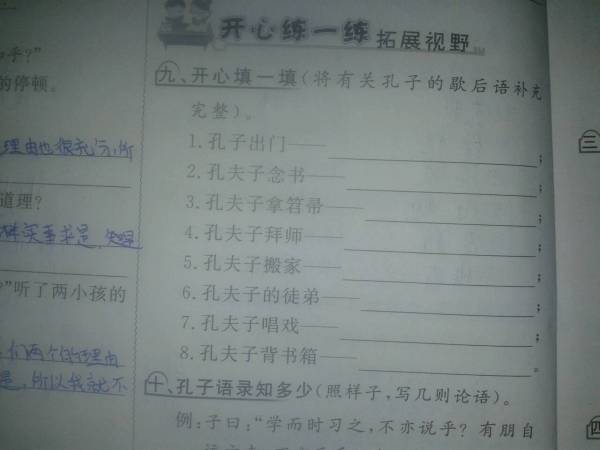 开心练一练 拓展视野
九、开心填一填(将有关孔子的歇后语补充
完整)。
1.孔子出门——;
2.孔夫子念书——;
3.孔夫子拿笤帚——;
4.孔夫子拜师——;
5.孔夫子搬家——;
6.孔夫子的徒弟——;
7.孔夫子唱戏——;
8.孔夫子背书箱——。
十、孔子语录知多少(照样子,写几则论语)。
例:子曰:“学而时习之,不亦说乎?有朋自
乎?”
的停顿。
理由也很充分,所
道理?
实事求是
?”听了两小孩的
们两个的理由
是,所以我就不
三
四